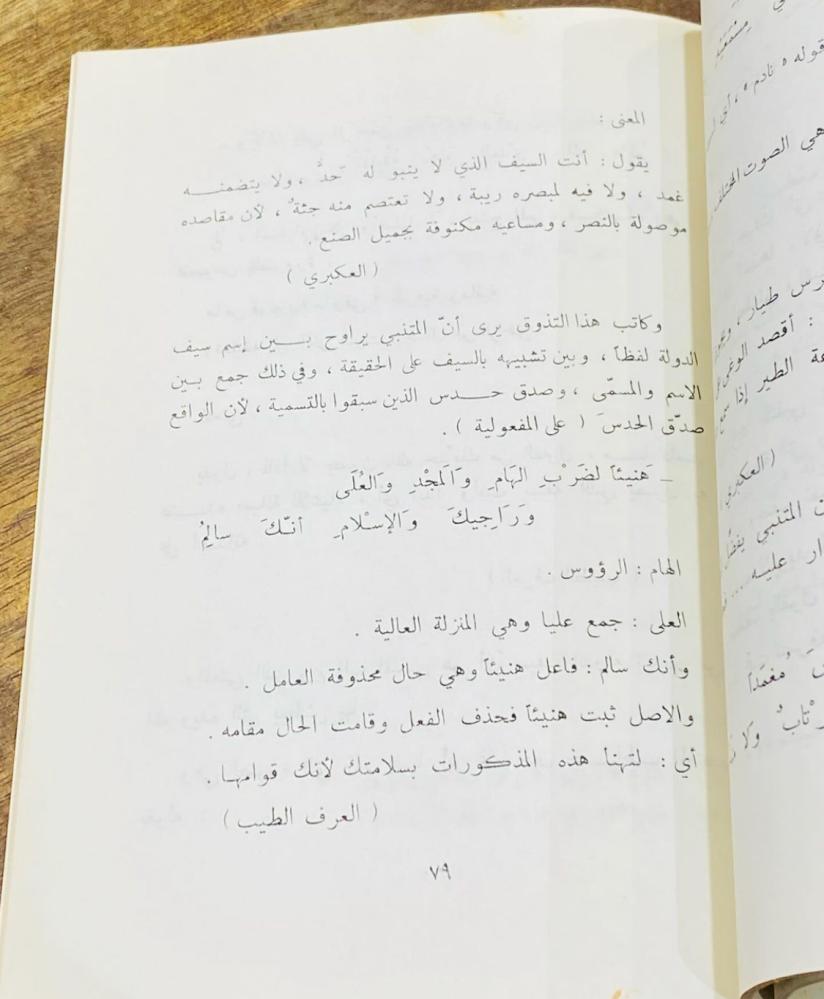 المعنى :
يقول : أنت السيف الذي لا ينبو له حدٌّ ، ولا يتضمنــه
غمد ، ولا فيه لمبصره ريبة ، ولا تعتصم منه جثةٌ ، لأن مقاصده
موصولة بالنصر ، ومساعيه مكنوفة بجميل الصنع .
( العكبري )
وكاتب هذا التذوق يرى أنّ المتنبي يراوح بــين إسم سيف
الدولة لفظاً ، وبين تشبيهه بالسيف على الحقيقة ، وفي ذلك جمع بــين
الاسم والمسمّى ، وصدق حــدس الذين سبقوا بالتسمية ، لأن الواقع
صدّق الحدسَ ( على المفعولية ) .
ــ هَنيئاً لضَرْبِ الهَامِ وَالمَجْدِ وَالعُلَى
وَرَاجِيكَ وَالإسْلامِ أنّكَ سالِمُ
الهام : الرؤوس .
العلى : جمع عليا وهي المنزلة العالية .
وأنك سالم : فاعل هنيئاً وهي حال محذوفة العامل .
والاصل ثبت هنيئاً فحذف الفعل وقامت الحال مقامه .
أي : لتهنأ هذه المذكورات بسلامتك لأنك قوامهـا .
( العرف الطيب )
٧٩
قوله « نادم » ، أي
هي الصوت
طيار ،
: أقصد
ة الطير إذا
( العكبري
المتنبي
ار عليــه ...
مُغمَداً